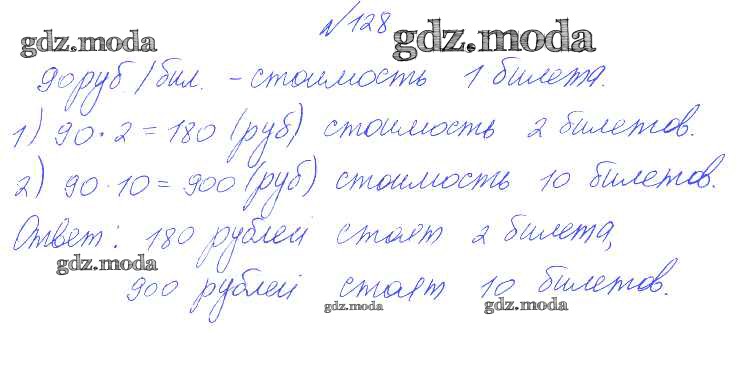 №128
gdz.moda gdz.moda
90руб/бил. - стоимость 1 билета.
1) 90·2=180 (руб) стоимость 2 билетов.
2) 90·10=900 (руб) стоимость 10 билетов.
Ответ: 180 рублей стоят 2 билета,
gdz.moda
900 рублей стоят 10 билетов.
gdz.moda gdz.moda